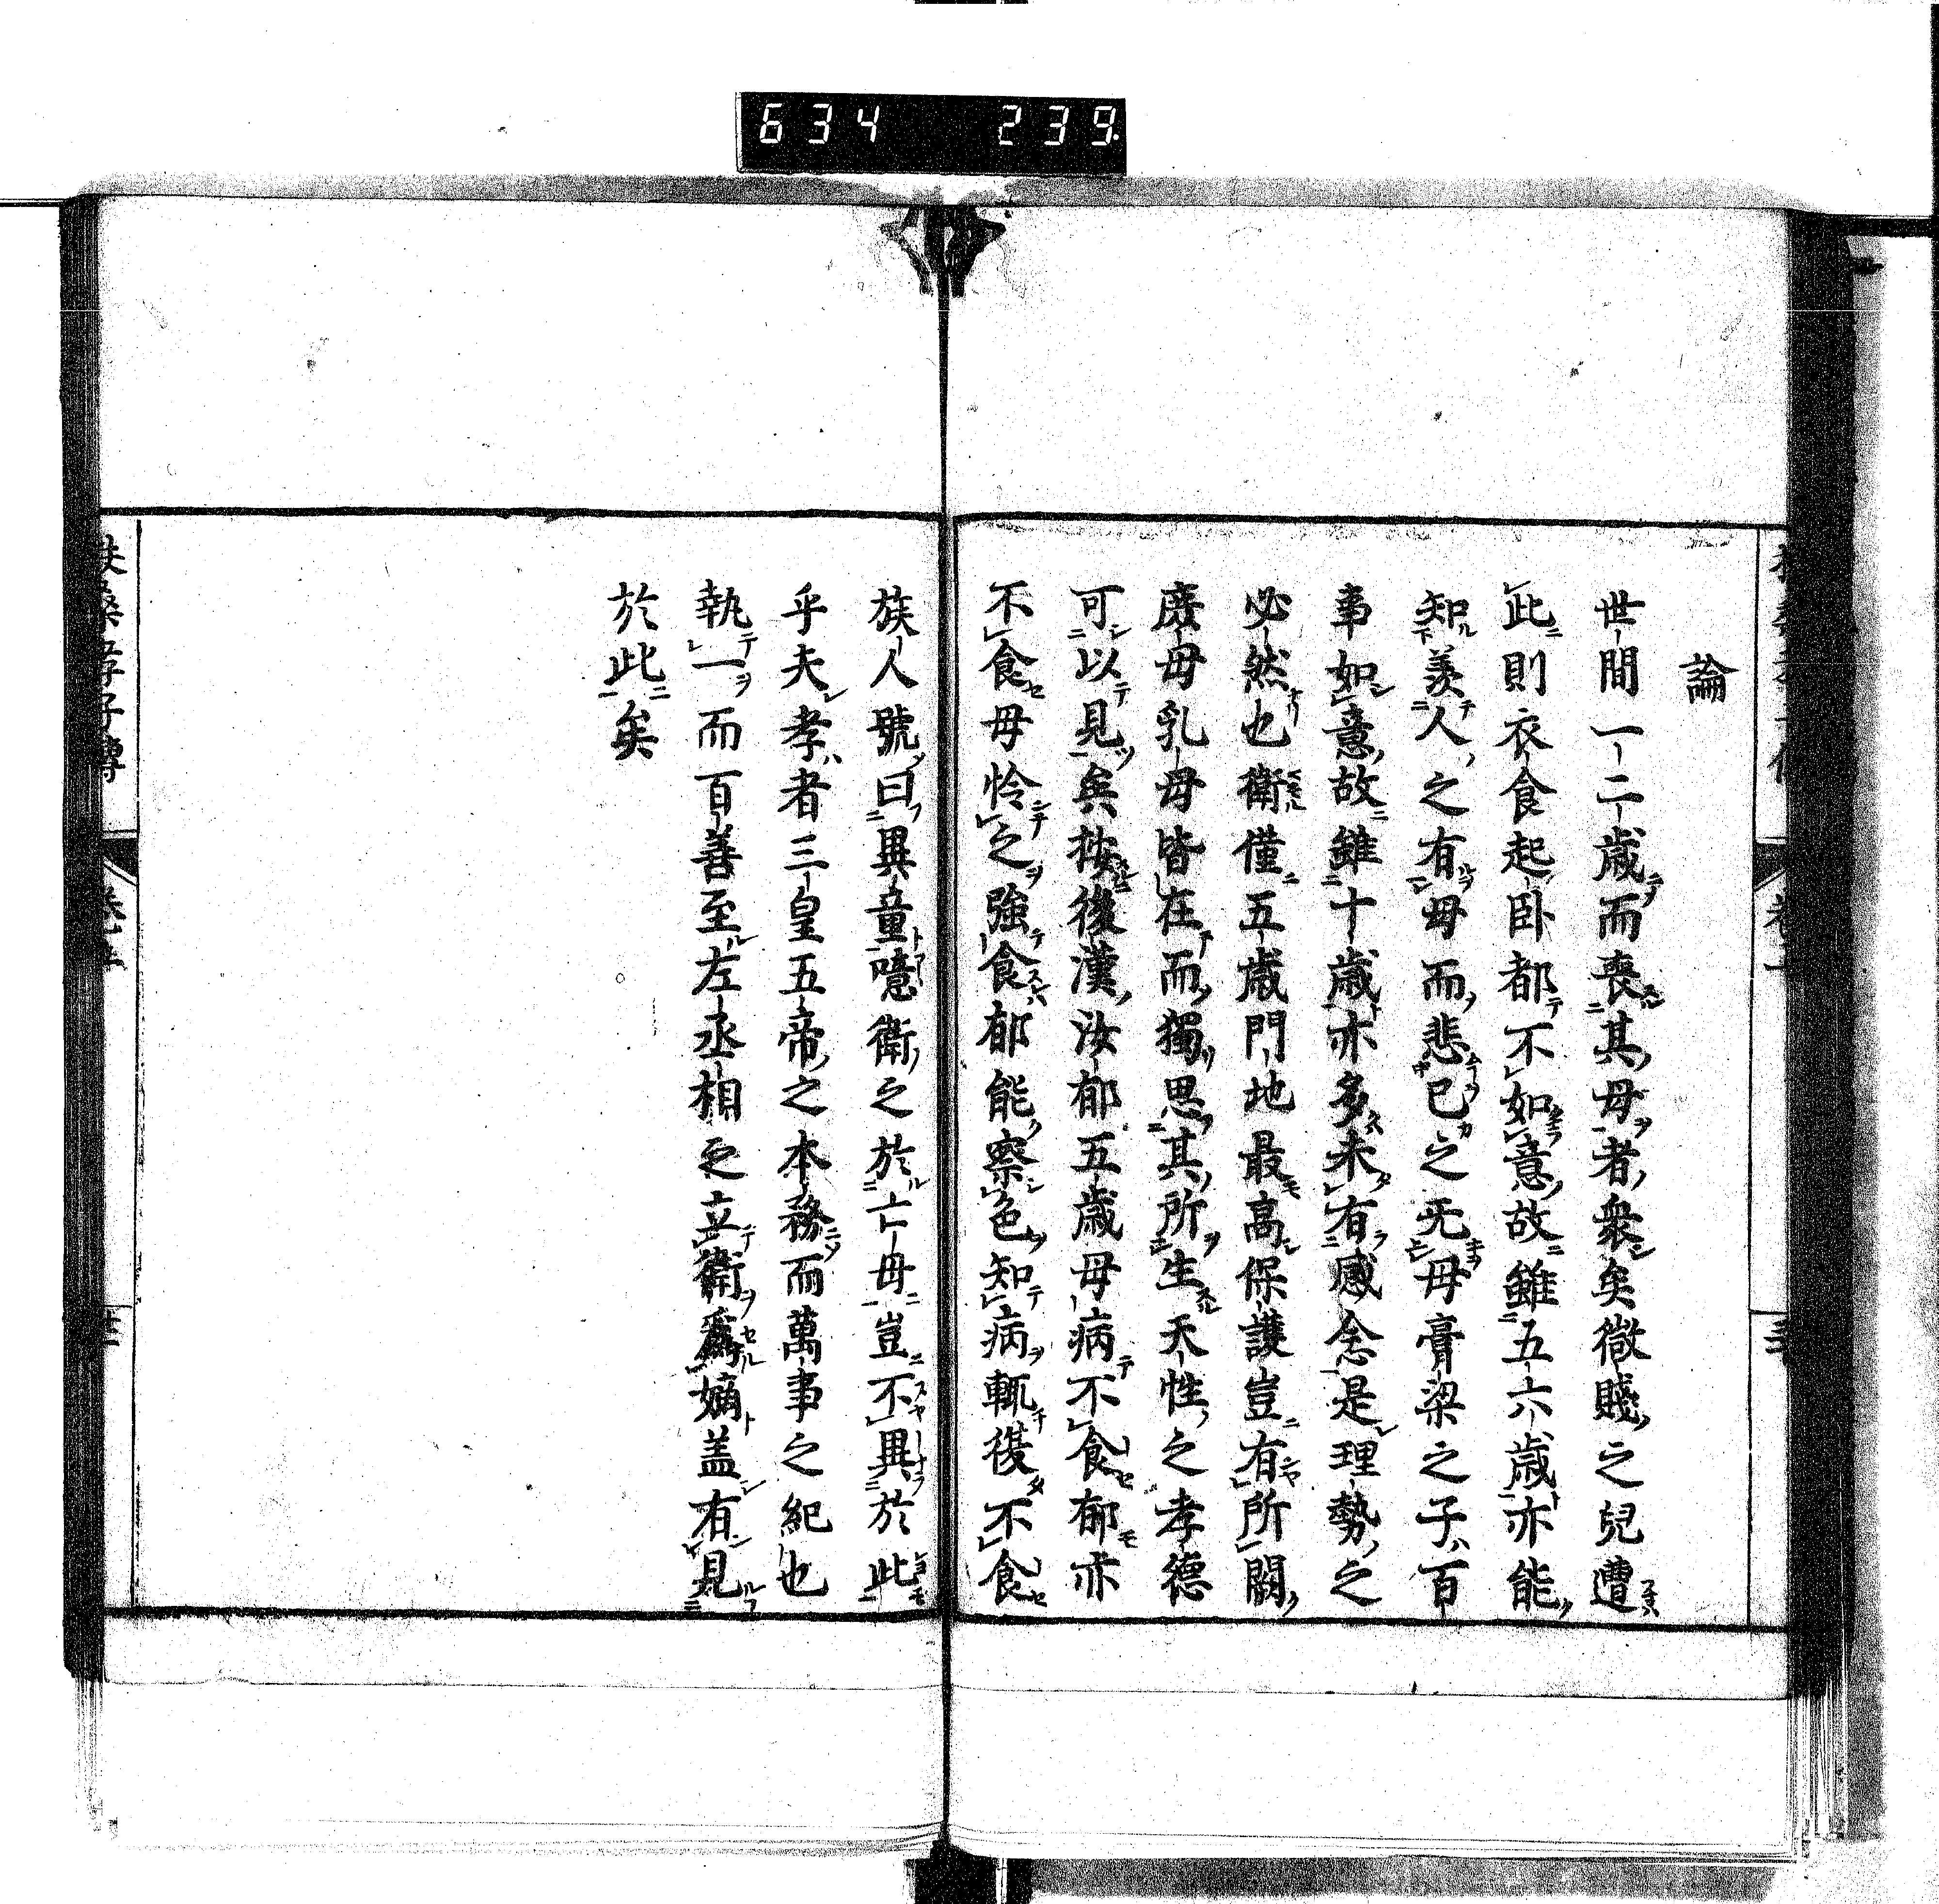 634 239
論
世間一二歳而喪其母者衆矣微賤之兒遭
此則衣食起臥都不如意故雖五六歳亦能
知羨人之有母而悲己之无母膏梁之子百
事如意故雖十歳亦多未有感念是理勢之
必然也衛僅五歳門地最高保護豈有所闕
廢母乳母皆在而獨思其所生天性之孝德
可以見矣按後漢汝郁五歳母病不食郁亦
不食母怜之強食郁能察色知病輒復不食
族人號曰異童噫衛之於亡母豈不異於此
乎夫孝者三皇五帝之本務而萬事之紀也
執一而百善至左丞相之立衛爲嫡蓋有見
於此矣
扶桑孝子傳